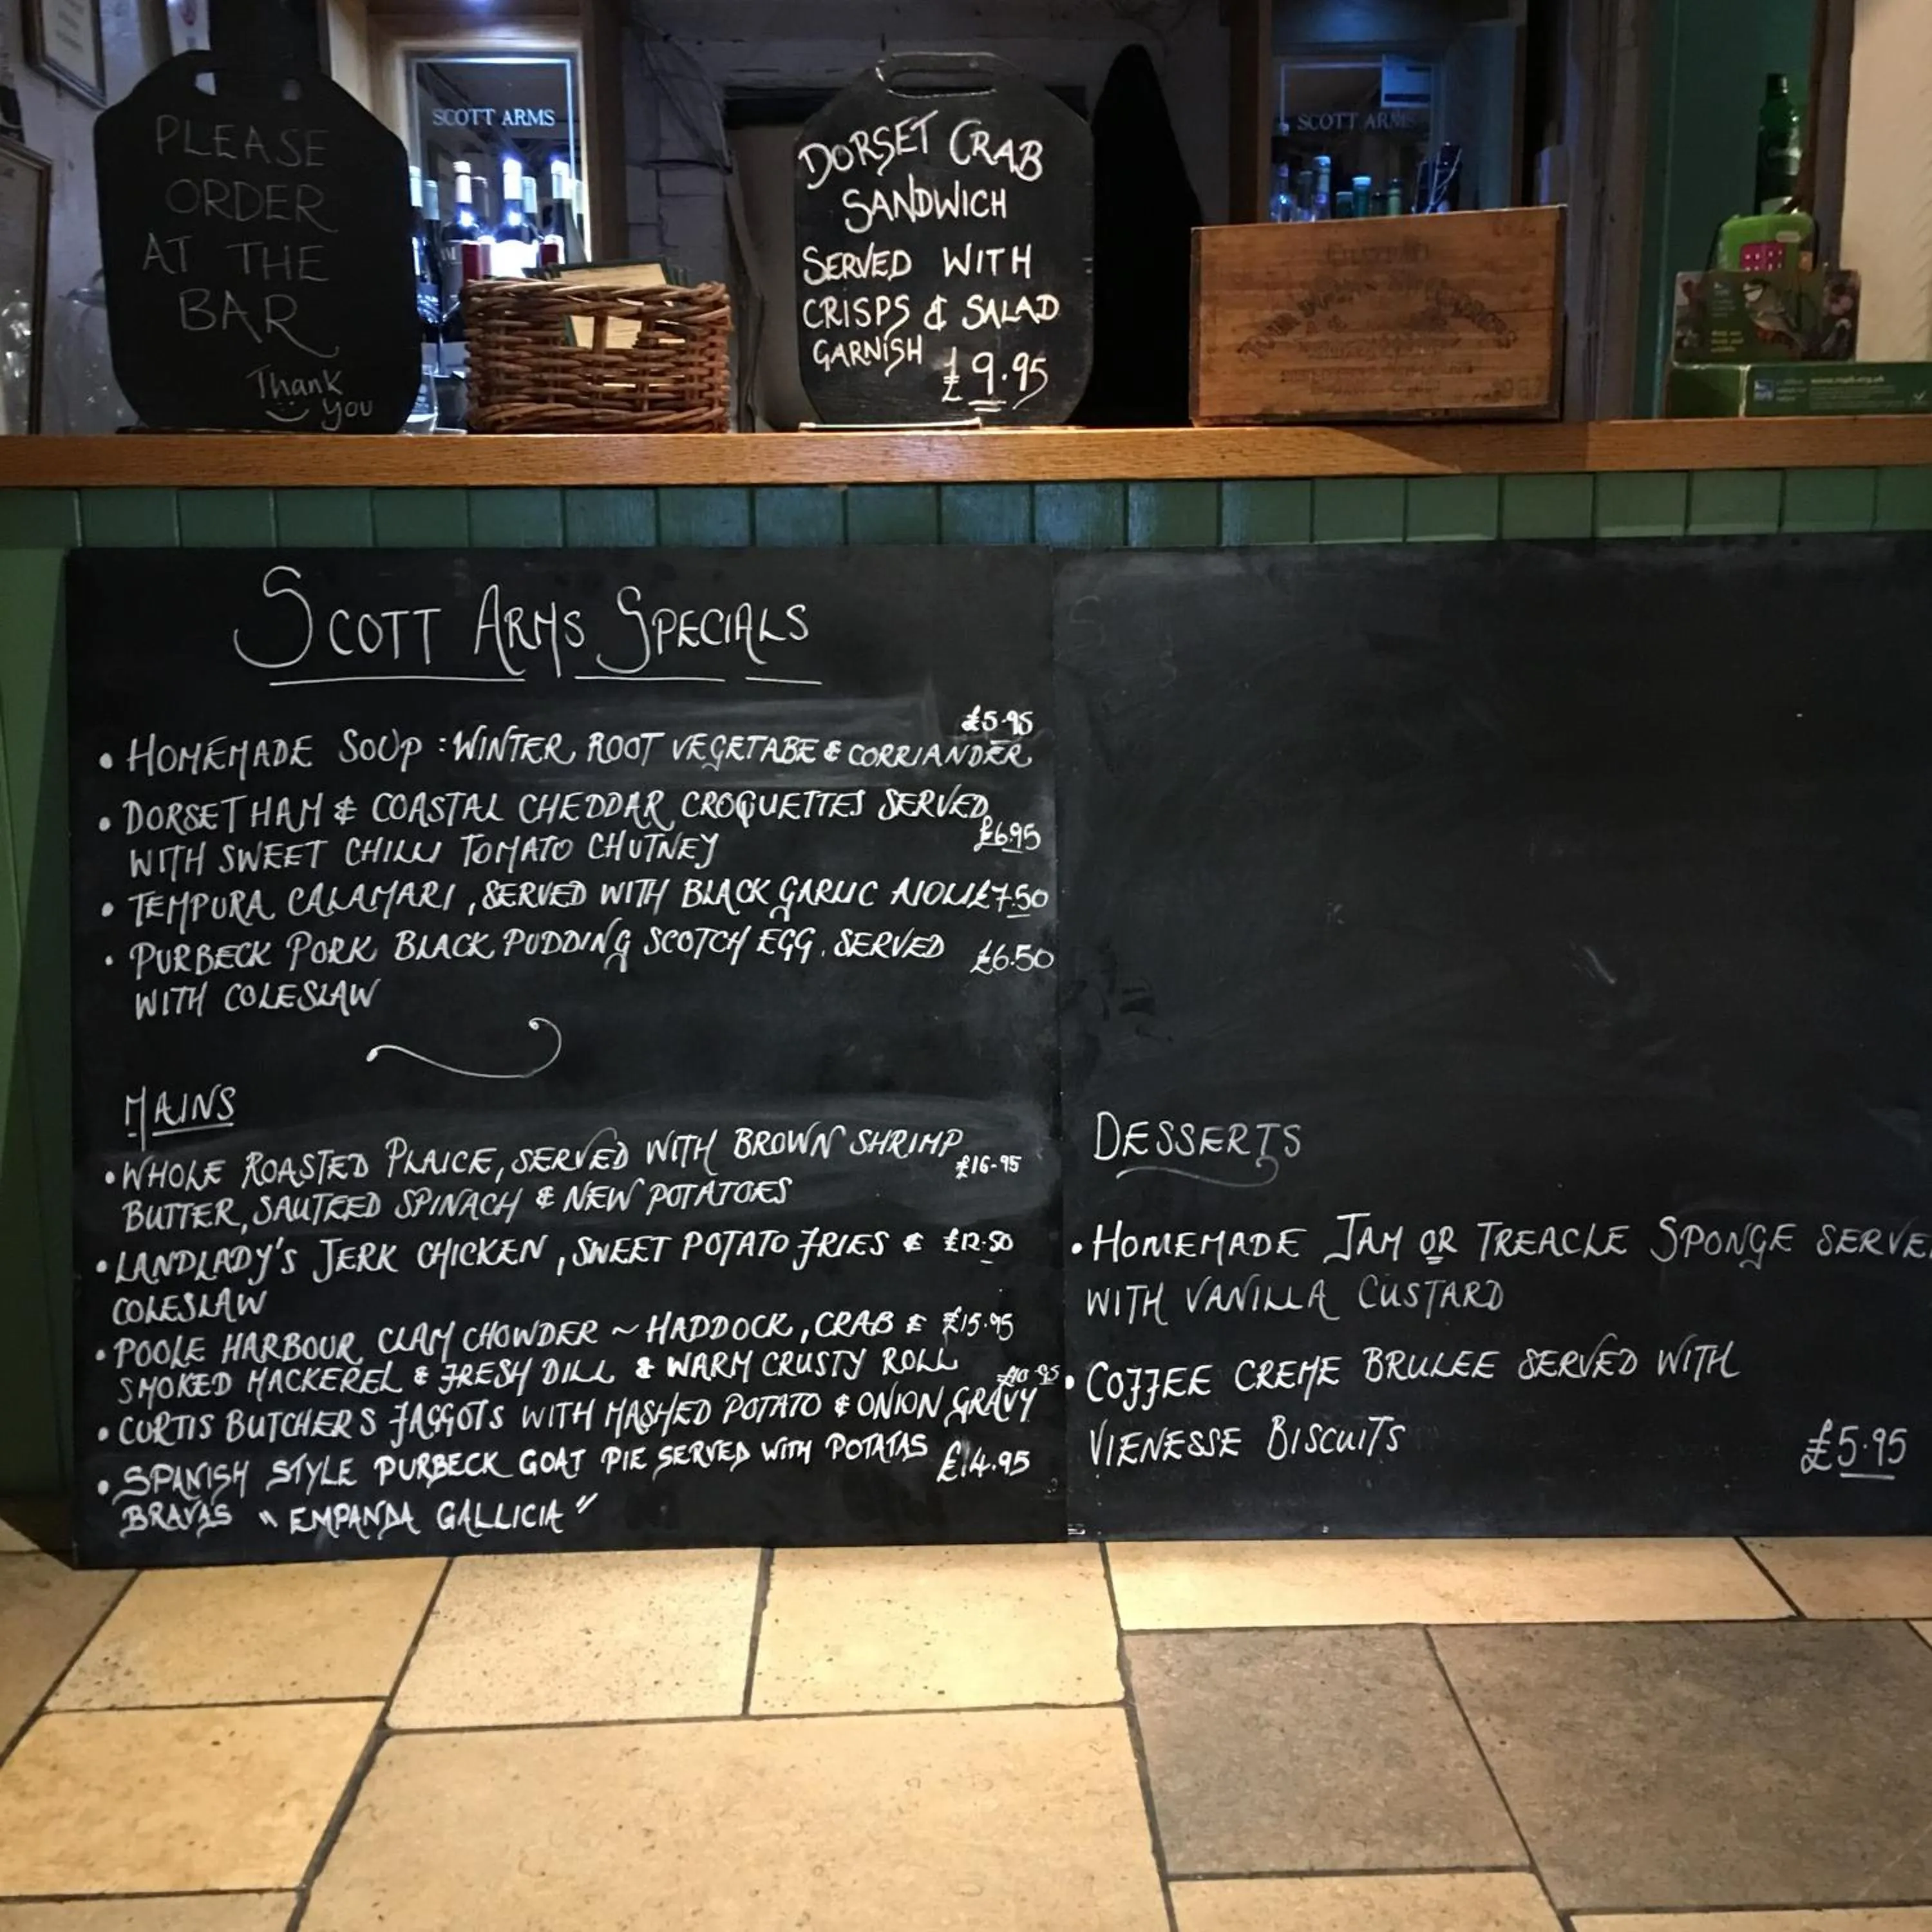 PLEASE
ORDER
AT THE
BAR
Thank
You
SCOTT ARMS
DORSET CRAB
SANDWICH
SERVED WITH
CRISPS & SALAD
GARNISH £9.95
SCOTT ARMS
SCOTT ARMS SPECIALS
£5.95
• HOMEMADE SOUP : WINTER ROOT VEGETABE & CORRIANDER
• DORSET HAM & COASTAL CHEDDAR CROQUETTES SERVED
WITH SWEET CHILLI TOMATO CHUTNEY £6.95
• TEMPURA CALAMARI, SERVED WITH BLACK GARLIC AIOLI £7.50
• PURBECK PORK BLACK PUDDING SCOTCH EGG, SERVED £6.50
WITH COLESLAW
MAINS
• WHOLE ROASTED PLAICE, SERVED WITH BROWN SHRIMP £16-95
BUTTER, SAUTEED SPINACH & NEW POTATOES
• LANDLADY'S JERK CHICKEN, SWEET POTATO FRIES & £12.50
COLESLAW
• POOLE HARBOUR CLAM CHOWDER ~ HADDOCK, CRAB & £15.95
SMOKED MACKEREL & FRESH DILL & WARM CRUSTY ROLL
£10.95
• CURTIS BUTCHERS FAGGOTS WITH MASHED POTATO & ONION GRAVY
• SPANISH STYLE PURBECK GOAT PIE SERVED WITH POTATAS £14.95
BRAVAS "EMPANDA GALLICIA"
DESSERTS
• HOMEMADE JAM OR TREACLE SPONGE SERVE
WITH VANILLA CUSTARD
• COFFEE CREME BRULEE SERVED WITH
VIENESSE BISCUITS £5.95